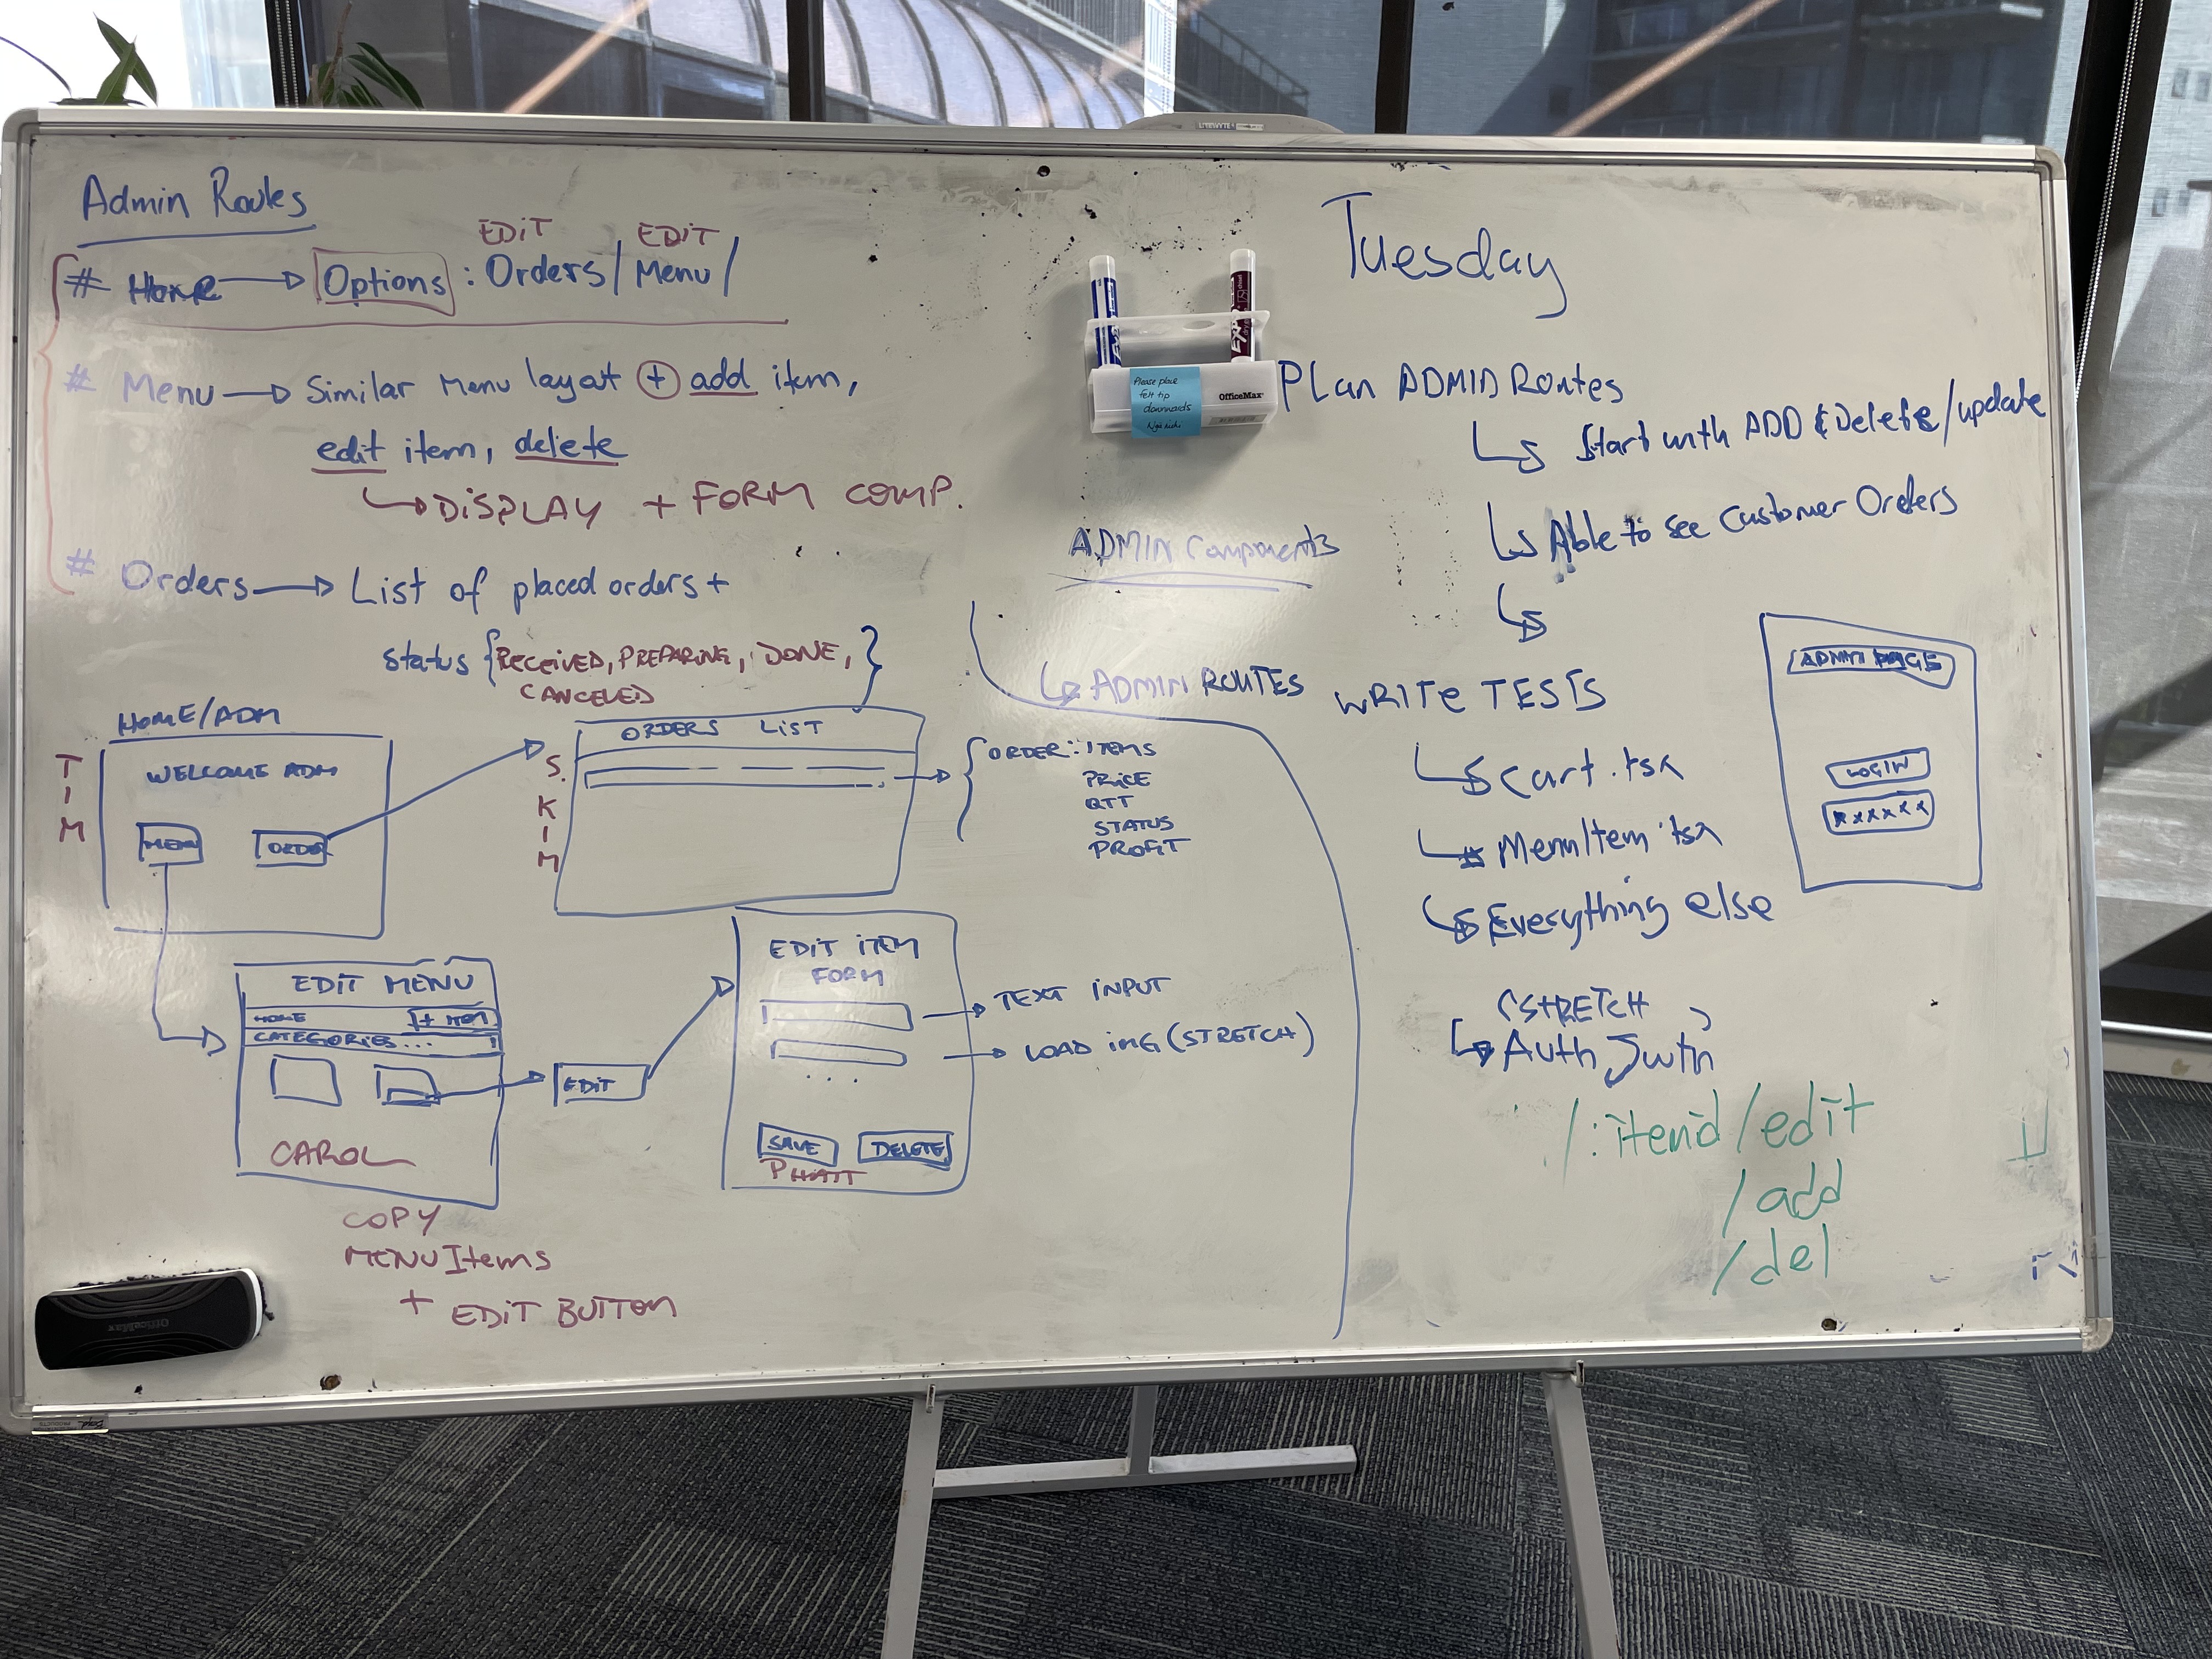 Admin Routes
EDIT EDIT
# Home → Options : Orders / Menu /
# Menu → Similar Menu layout + add item,
edit item, delete
↳ DISPLAY + FORM COMP.
# Orders → List of placed orders +
status { RECEIVED, PREPARING, DONE, }
CANCELED
HOME/ADM
TIM
WELCOME ADM
MENU
ORDER
S. KIM
ORDERS LIST
ORDER: ITEMS
PRICE
QTT
STATUS
PROFIT
EDIT MENU
HOME
CATEGORIES ...
CAROL
COPY
MENUItems
+ EDIT BUTTON
EDIT
EDIT ITEM
FORM
...
SAVE
DELETE
PHATT
TEXT INPUT
LOAD IMG (STRETCH)
ADMIN Components
↳ ADMIN ROUTES
Please place
felt tip
downwards
OfficeMax
EXPO
Tuesday
PLan ADMIN Routes
↳ Start with ADD & Delete/update
↳ Able to see Customer Orders
↳
WRITE TESTS
↳ Cart.tsx
↳ MenuItem.tsx
↳ Everything else
(STRETCH)
↳ Auth Jwtn
ADMIN PAGE
LOGIN
xxxxxx
/:itemid/edit
/add
/del
OfficeMax